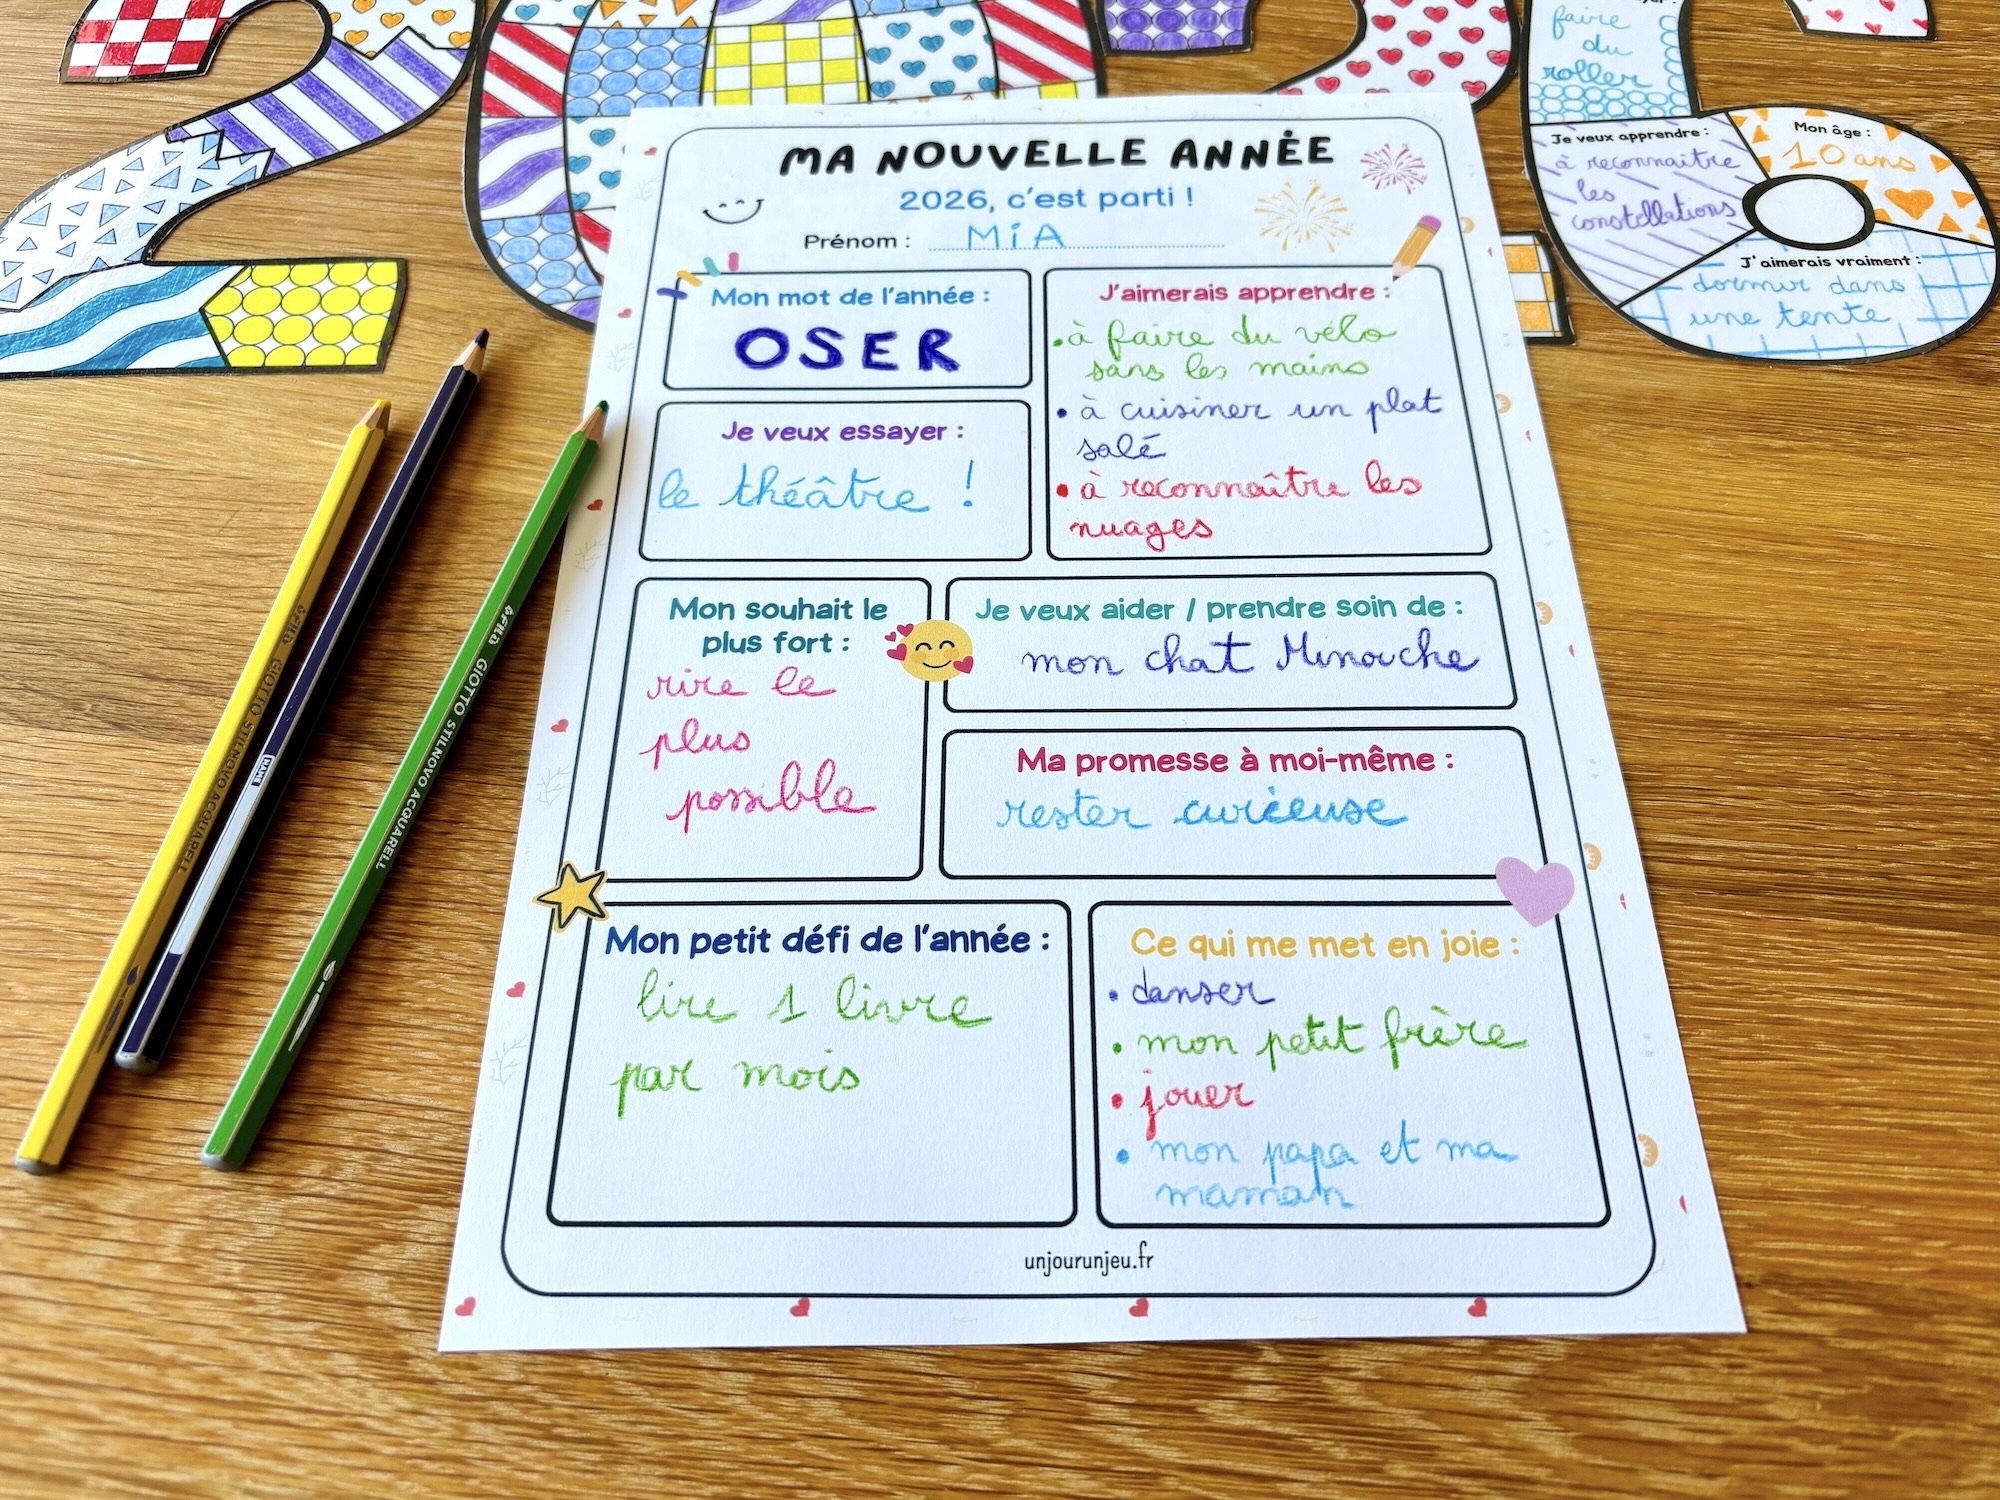 faire
du
roller
Je veux apprendre :
à reconnaître
les
constellations
Mon âge :
10 ans
J'aimerais vraiment :
dormir dans
une tente
MA NOUVELLE ANNÉE
2026, c'est parti !
Prénom : MiA
Mon mot de l'année :
OSER
J'aimerais apprendre :
• à faire du vélo
sans les mains
• à cuisiner un plat
salé
• à reconnaître les
nuages
Je veux essayer :
le théâtre !
Mon souhait le
plus fort :
rire le
plus
possible
Je veux aider / prendre soin de :
mon chat Minouche
Ma promesse à moi-même :
rester curieuse
Mon petit défi de l'année :
lire 1 livre
par mois
Ce qui me met en joie :
• danser
• mon petit frère
• jouer
• mon papa et ma
maman
unjourunjeu.fr
FILA GIOTTO STILNOVO ACQUARELL
NAME
FILA GIOTTO STILNOVO ACQUARELL